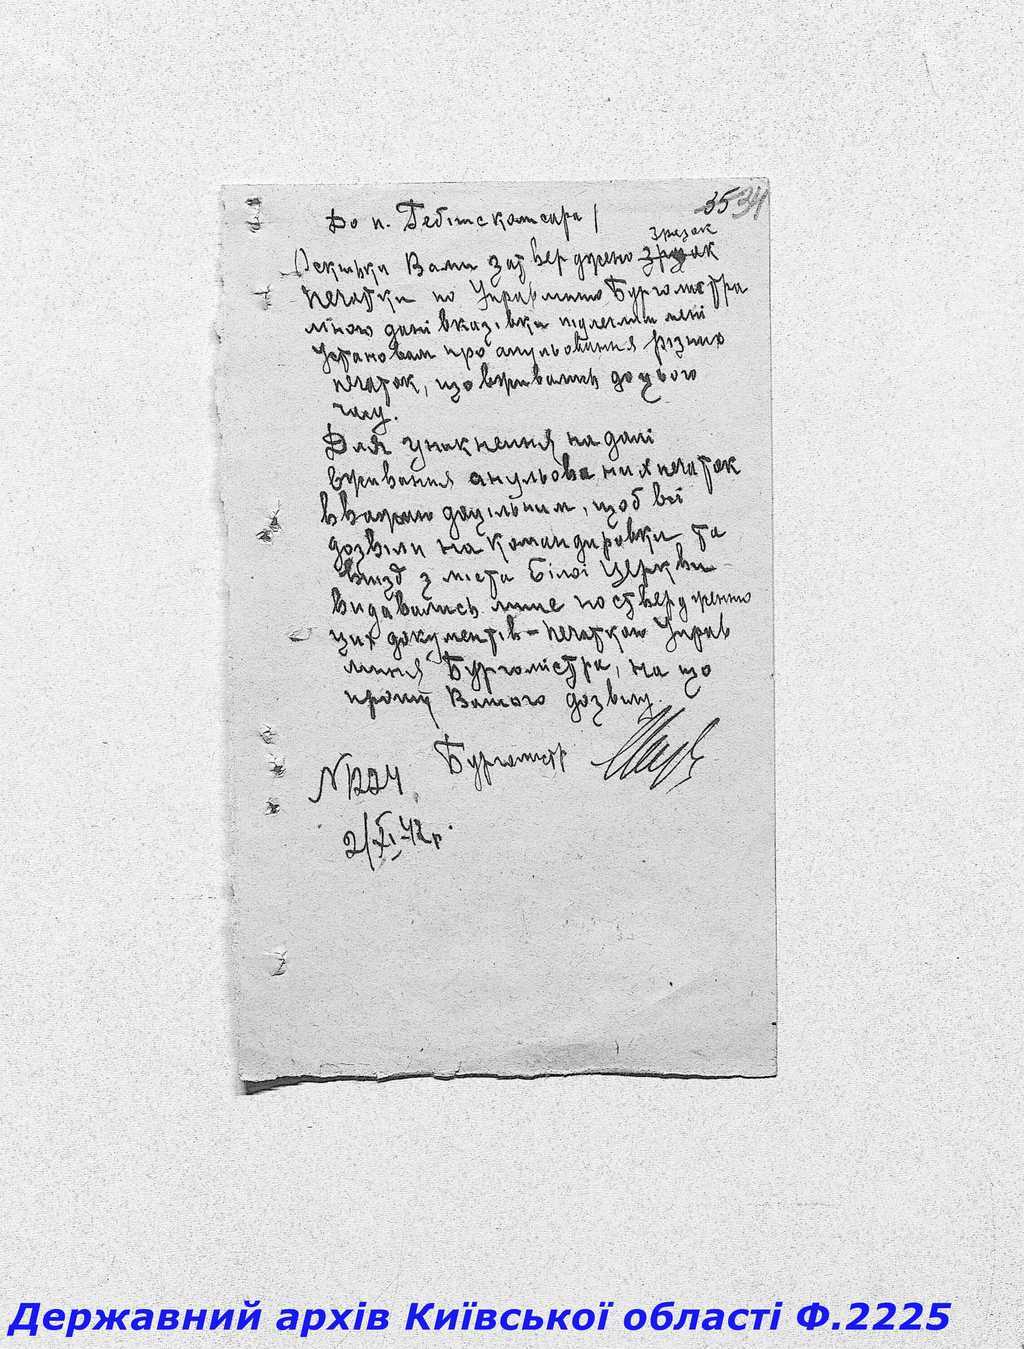 35 34
До п. Гебітскомісара
Зразок
Оскільки Вами затверджено зразок
печатки по Управлінню Бургомістра
мною дані вказівки підлеглим мені
Установам про анульовання різних
печаток, що вживались до цього
часу.
Для уникнення на далі
вживання анульованих печаток
вважаю доцільним, щоб всі
дозвіли на командировки та
виїзд з міста Білої Церкви
видавались лише по ствердженню
цих документів – печаткою Управ
ління Бургомістра, на що
прошу Вашого дозвілу.
Бургомістр
N 1224
2/XI-42 р.
Державний архів Київської області Ф.2225